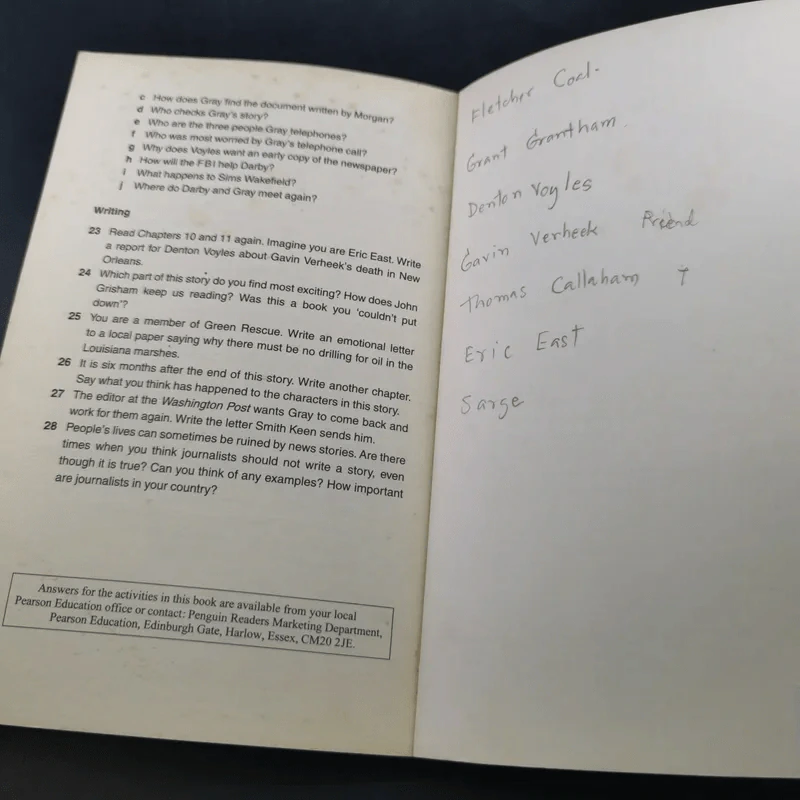 c How does Gray find the document written by Morgan?
d Who checks Gray's story?
e Who are the three people Gray telephones?
f Who was most worried by Gray's telephone call?
g Why does Voyles want an early copy of the newspaper?
h How will the FBI help Darby?
i What happens to Sims Wakefield?
j Where do Darby and Gray meet again?
Writing
23 Read Chapters 10 and 11 again. Imagine you are Eric East. Write
a report for Denton Voyles about Gavin Verheek's death in New
Orleans.
24 Which part of this story do you find most exciting? How does John
Grisham keep us reading? Was this a book you 'couldn't put
down'?
25 You are a member of Green Rescue. Write an emotional letter
to a local paper saying why there must be no drilling for oil in the
Louisiana marshes.
26 It is six months after the end of this story. Write another chapter.
Say what you think has happened to the characters in this story.
27 The editor at the Washington Post wants Gray to come back and
work for them again. Write the letter Smith Keen sends him.
28 People's lives can sometimes be ruined by news stories. Are there
times when you think journalists should not write a story, even
though it is true? Can you think of any examples? How important
are journalists in your country?
Answers for the activities in this book are available from your local
Pearson Education office or contact: Penguin Readers Marketing Department,
Pearson Education, Edinburgh Gate, Harlow, Essex, CM20 2JE.
Fletcher Coal.
Grant Grantham.
Denton Voyles
Gavin Verheek Friend
Thomas Callaham
Eric East
Sarge